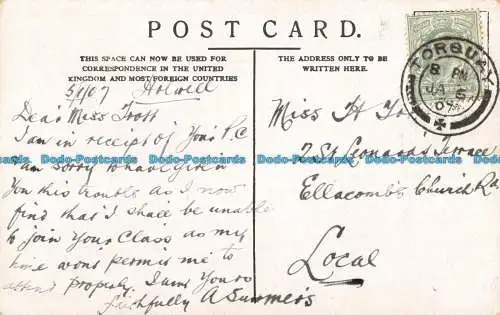 POST CARD.
THIS SPACE CAN NOW BE USED FOR
CORRESPONDENCE IN THE UNITED
KINGDOM AND MOST FOREIGN COUNTRIES
THE ADDRESS ONLY TO BE
WRITTEN HERE.
TORQUAY
8 PM
JA 5
07
5/1/07 Holwell
Dear Miss Trott
I am in receipt of Your P.C
I am sorry to have given
You this trouble as I now
find that I shall be unable
to join Your Class as my
time won't permit me to
attend properly. I am Yours
faithfully A Summers
Miss H
7 St Leonards Terrace
Ellacombe Church Rd
Local
Dodo-Postcards Dodo-Postcards Dodo-Postcards Dodo-Postcards Dodo-Postcards